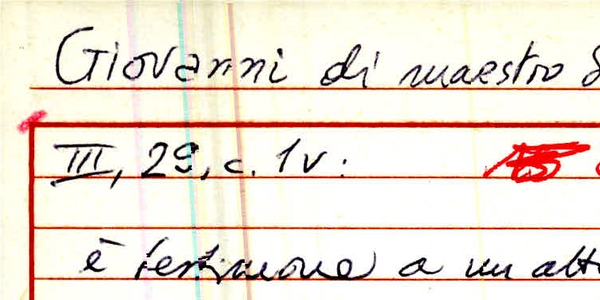 Giovanni di maestro
III, 29, c. 1v:
è testimone a un